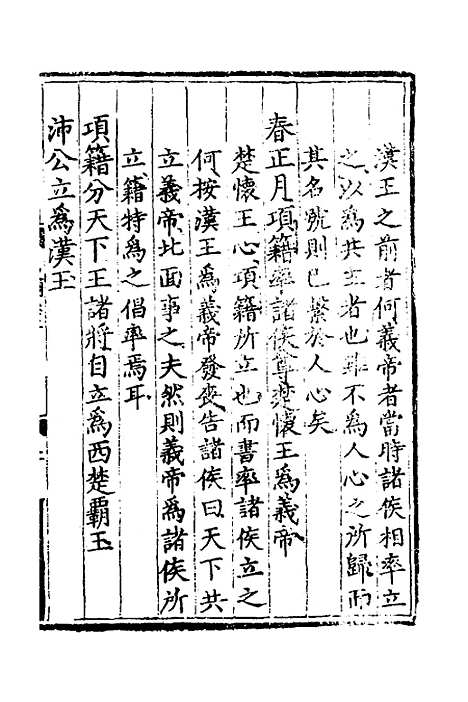 漢王之前者何義帝者當時諸侯相率立
之以爲共主者也雖不爲人心之所歸而
其名號則已繫於人心矣
春正月項籍率諸侯尊楚懷王爲義帝
楚懷王心項籍所立也而書率諸侯立之
何按漢王爲義帝發喪告諸侯曰天下共
立義帝北面事之夫然則義帝爲諸侯所
立籍特爲之倡率焉耳
項籍分天下王諸將自立爲西楚霸王
沛公立爲漢王